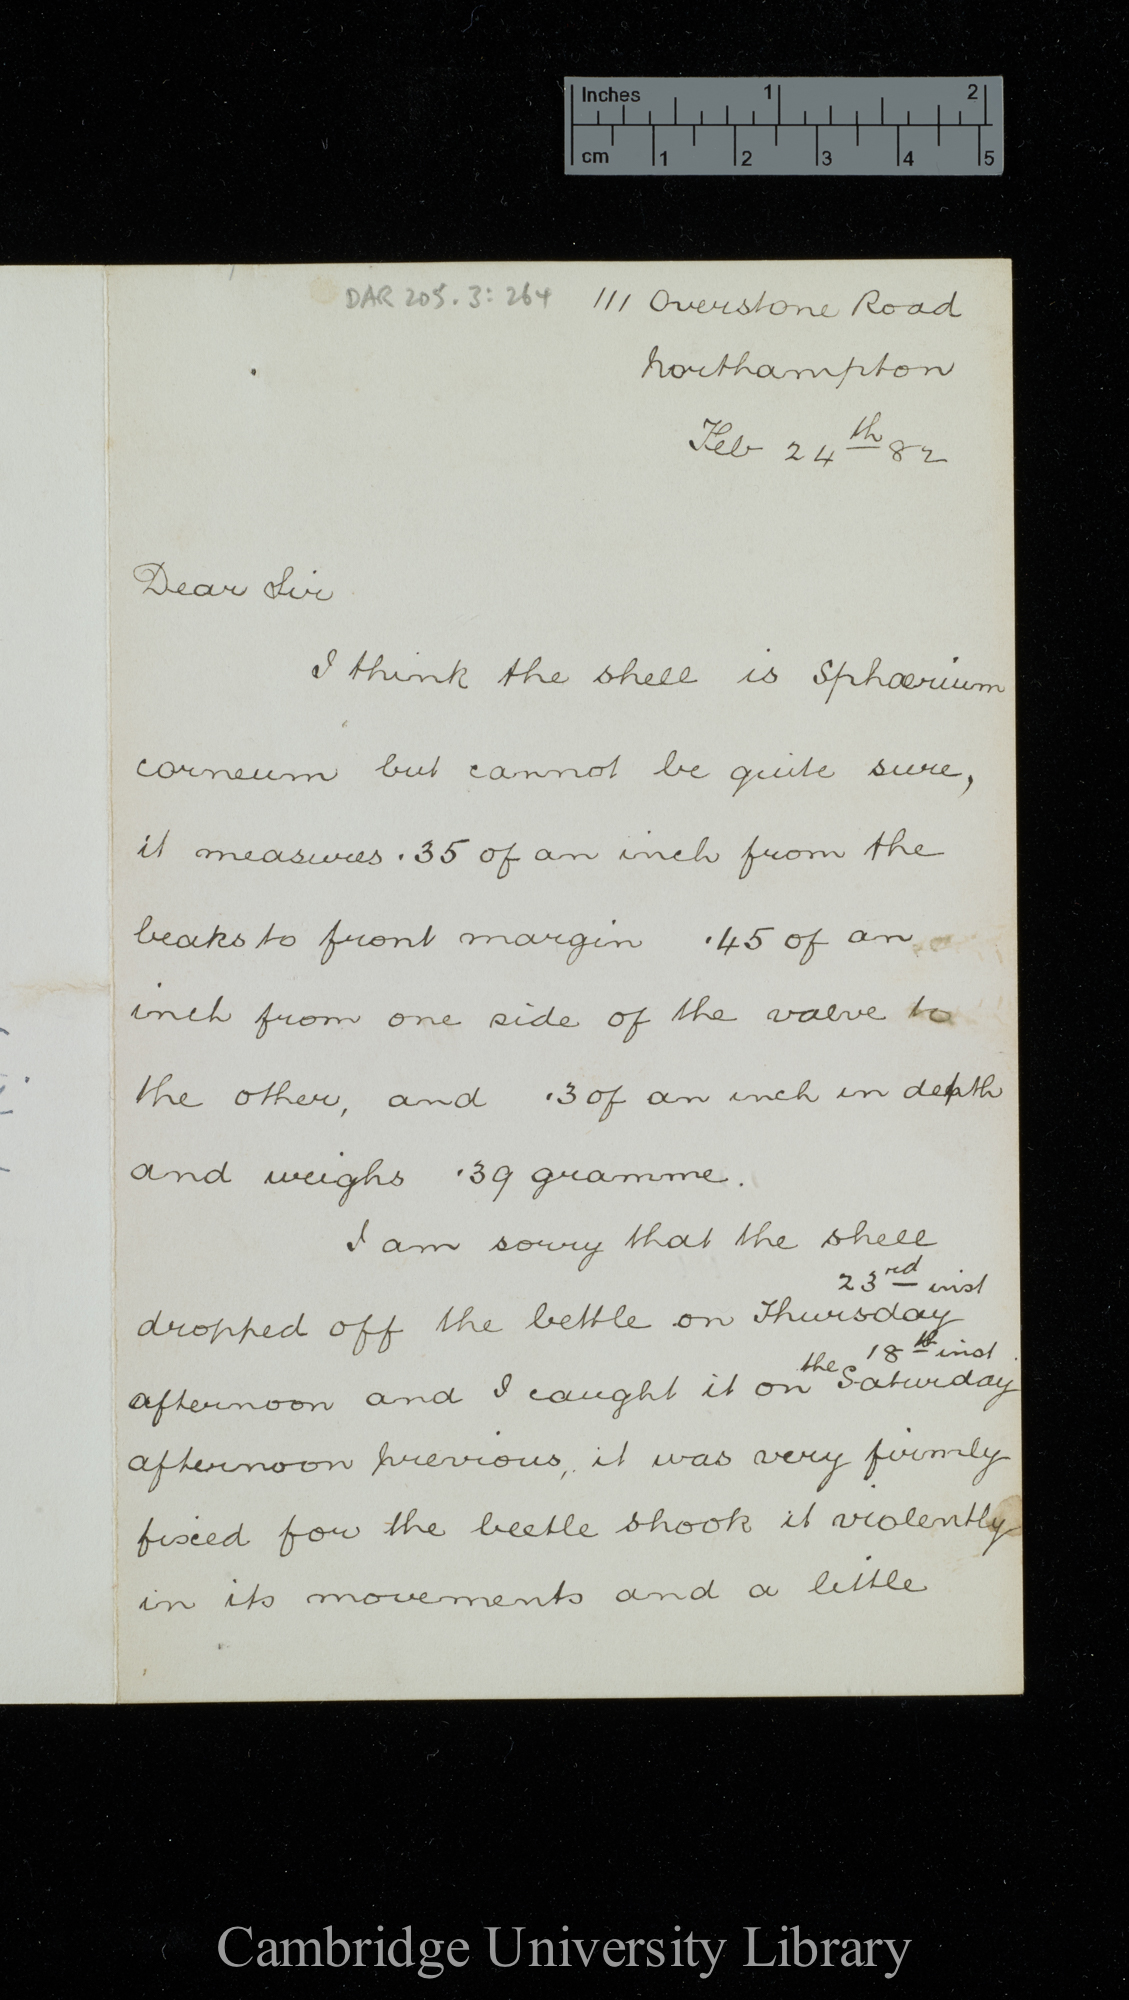 Inches 1 2
cm 1 2 3 4 5
DAR 205.3:264
111 Overstone Road
Northampton
Feb 24th 82
Dear Sir
I think the shell is Sphærium
corneum but cannot be quite sure,
it measures .35 of an inch from the
beaks to front margin .45 of an
inch from one side of the valve to
the other, and .3 of an inch in depth
and weighs .39 gramme.
I am sorry that the shell
23rd inst
dropped off the bettle on Thursday
the 18th inst.
afternoon and I caught it on Saturday
afternoon previous, it was very firmly
fixed for the beetle shook it violently
in its movements and a little
Cambridge University Library